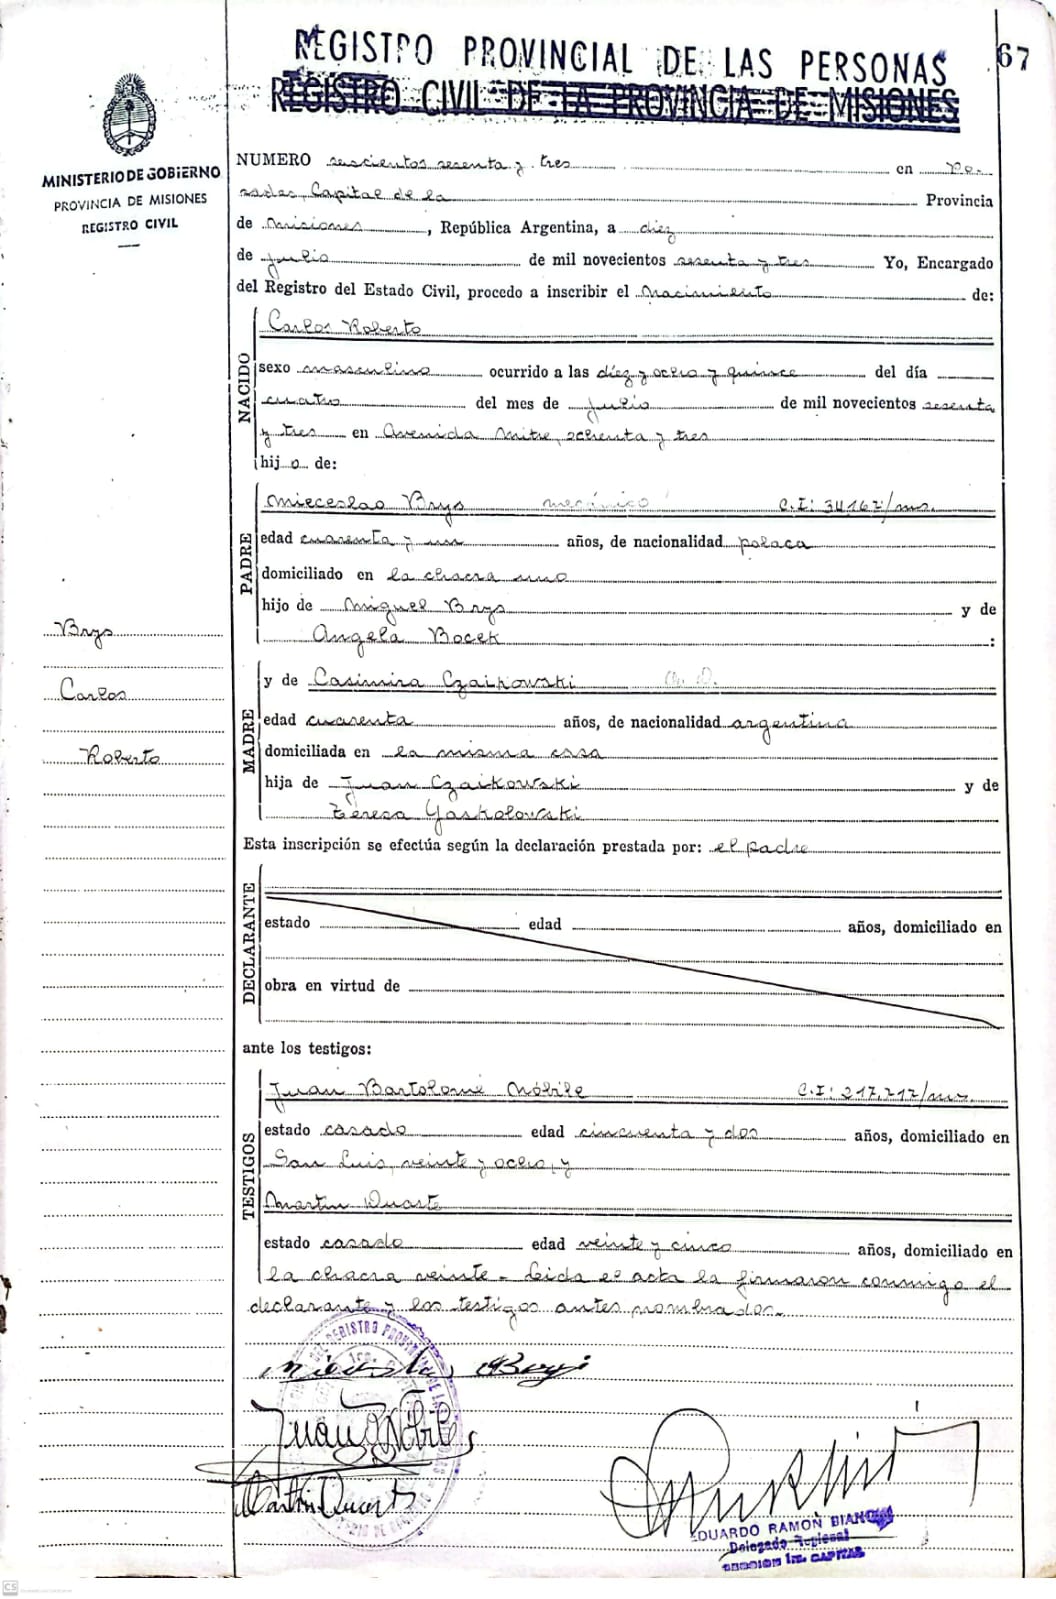 REGISTRO PROVINCIAL DE LAS PERSONAS
67
REGISTRO CIVIL DE LA PROVINCIA DE MISIONES
MINISTERIO DE GOBIERNO
PROVINCIA DE MISIONES
REGISTRO CIVIL
NUMERO seiscientos sesenta y tres en Po-
sadas, Capital de la Provincia
de Misiones, República Argentina, a diez
de julio de mil novecientos sesenta y tres Yo, Encargado
del Registro del Estado Civil, procedo a inscribir el nacimiento de:
NACIDO
Carlos Roberto
sexo masculino ocurrido a las diez y ocho y quince del día
cuatro del mes de julio de mil novecientos sesenta
y tres en Avenida Mitre, ochenta y tres
hijo de:
PADRE
Mieceslao Brys mecánico C.I: 34167/ms.
edad cuarenta y un años, de nacionalidad polaca
domiciliado en la chacra uno
hijo de Miguel Brys y de
Angela Bocek :
Brys
Carlos
Roberto
MADRE
y de Casimira Czaikowski
edad cuarenta años, de nacionalidad argentina
domiciliada en la misma casa
hija de Juan Czaikowski y de
Teresa Yaskolowski
Esta inscripción se efectúa según la declaración prestada por: el padre
DECLARANTE
estado edad años, domiciliado en
obra en virtud de
ante los testigos:
TESTIGOS
Juan Bartolomé Nóbile C.I: 217.217/ms.
estado casado edad cincuenta y dos años, domiciliado en
San Luis, veinte y ocho, y
Martin Duarte
estado casado edad veinte y cinco años, domiciliado en
la chacra veinte - Leida el acta la firmaron conmigo el
declarante y los testigos antes nombrados.
Juan B Nóbile
Martin Duarte
EDUARDO RAMON BIANCHI
Delegado Regional
SECCION 1ra. CAPITAL
CS